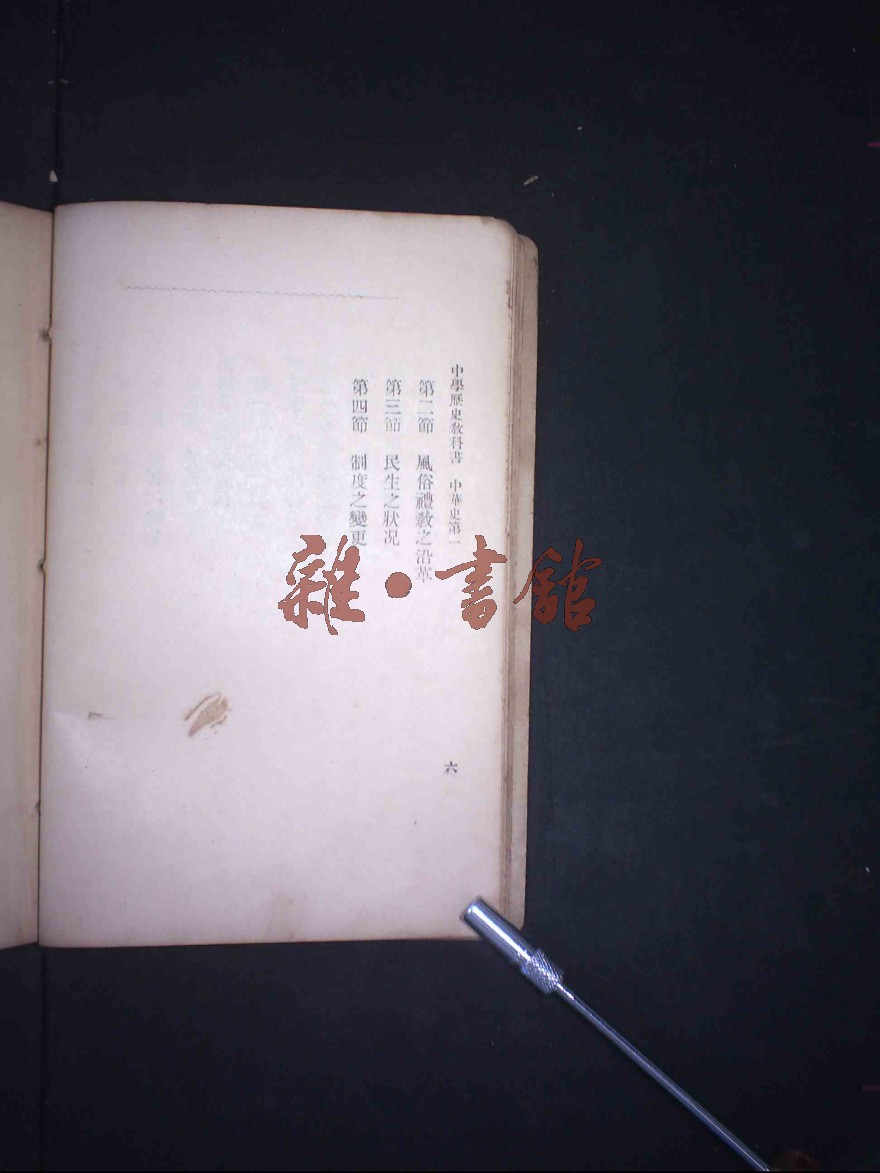 中學歷史敎科書　中華史第一
六
第二節　風俗禮敎之沿革
第三節　民生之狀况
第四節　制度之變更
雜·書館